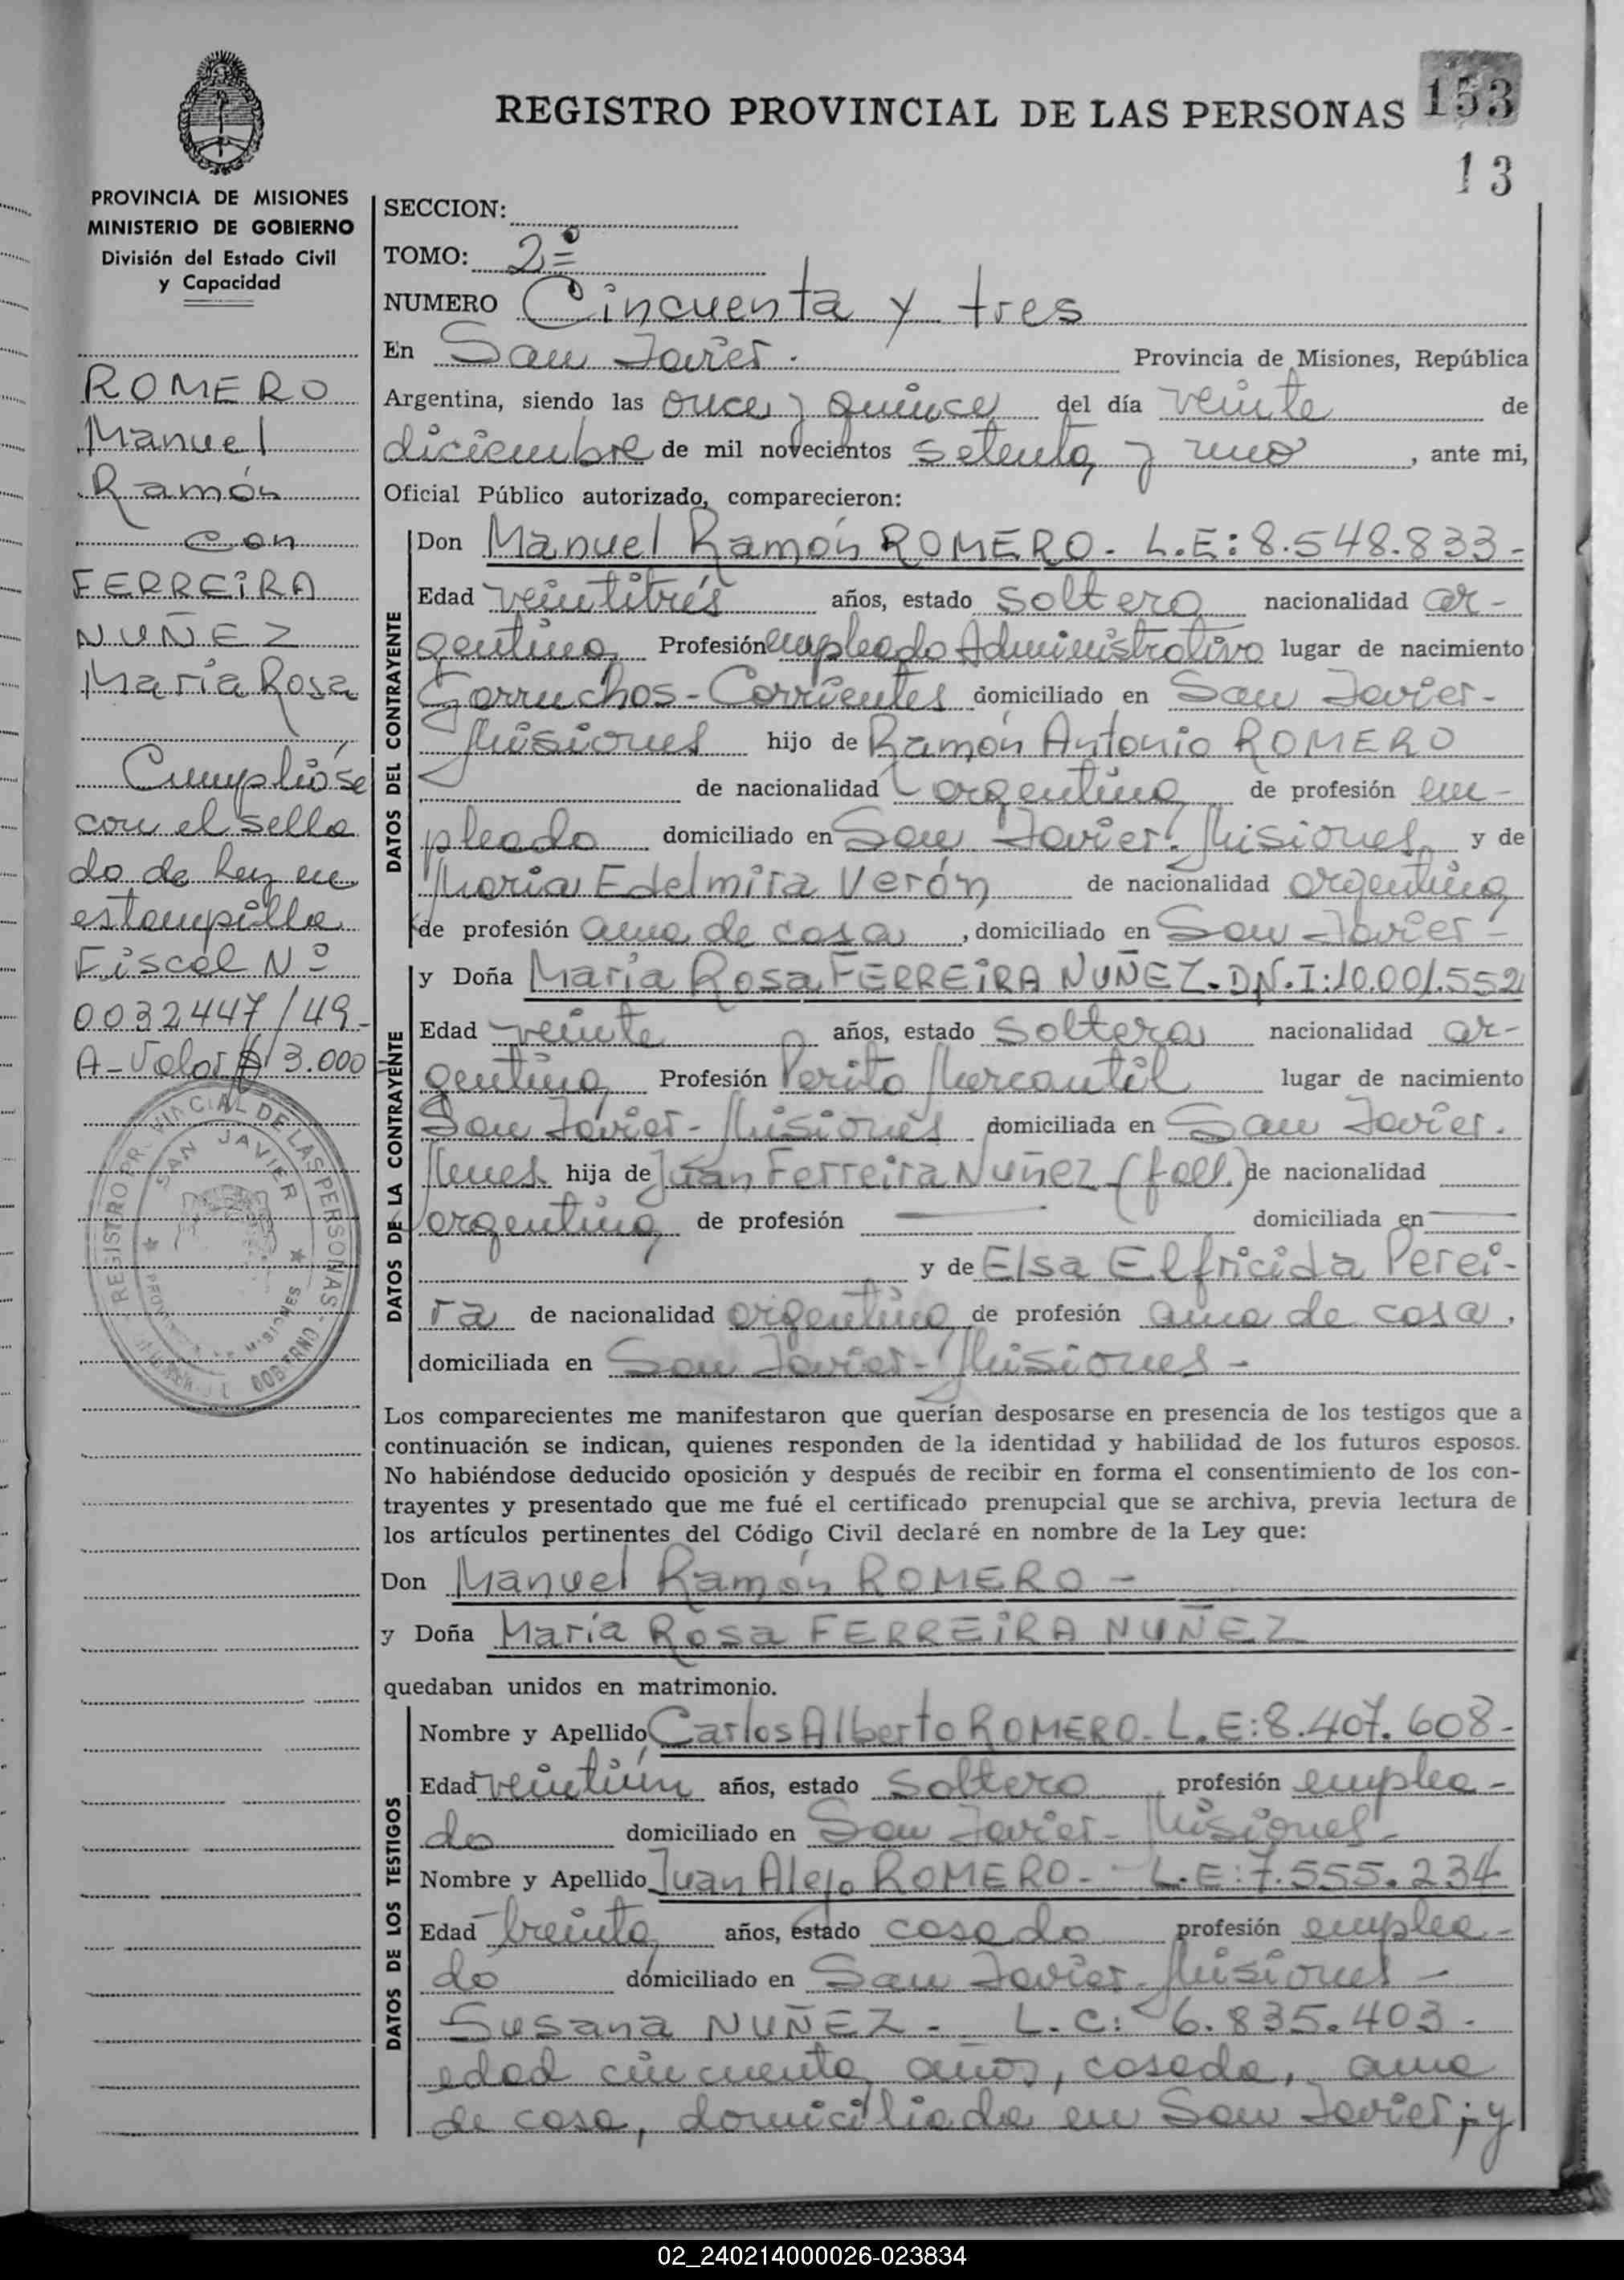 REGISTRO PROVINCIAL DE LAS PERSONAS
153
13
PROVINCIA DE MISIONES
MINISTERIO DE GOBIERNO
División del Estado Civil
y Capacidad
ROMERO
Manuel
Ramón
con
FERREIRA
NUÑEZ
María Rosa
Cumplióse
con el sella
do de ley en
estampilla
Fiscal Nº
0032447/49-
A-Valor $ 3.000
REGISTRO PROVINCIAL DE LAS PERSONAS
SAN JAVIER
MISIONES
GOBIERNO
SECCION:
TOMO: 2º
NUMERO Cincuenta y tres
En San Javier. Provincia de Misiones, República
Argentina, siendo las once y quince del día veinte de
diciembre de mil novecientos setenta y uno, ante mi,
Oficial Público autorizado, comparecieron:
DATOS DEL CONTRAYENTE
Don Manuel Ramón ROMERO- L.E:8.548.833-
Edad veintitrés años, estado soltero nacionalidad ar-
gentina Profesión empleado Administrativo lugar de nacimiento
Garruchos-Corrientes domiciliado en San Javier-
Misiones hijo de Ramón Antonio ROMERO
de nacionalidad argentina de profesión em-
pleado domiciliado en San Javier. Misiones y de
María Edelmira Verón de nacionalidad argentina
de profesión ama de casa, domiciliado en San Javier-
DATOS DE LA CONTRAYENTE
y Doña María Rosa FERREIRA NUÑEZ-DN.I:10.001.552
Edad veinte años, estado soltera nacionalidad ar-
gentina Profesión Perito Mercantil lugar de nacimiento
San Javier-Misiones domiciliada en San Javier.
Mnes hija de Juan Ferreira Nuñez (fall.) de nacionalidad
argentina de profesión — domiciliada en —
y de Elsa Elfricida Perei-
ra de nacionalidad argentina de profesión ama de casa,
domiciliada en San Javier-Misiones-
Los comparecientes me manifestaron que querían desposarse en presencia de los testigos que a
continuación se indican, quienes responden de la identidad y habilidad de los futuros esposos.
No habiéndose deducido oposición y después de recibir en forma el consentimiento de los con-
trayentes y presentado que me fué el certificado prenupcial que se archiva, previa lectura de
los artículos pertinentes del Código Civil declaré en nombre de la Ley que:
Don Manuel Ramón ROMERO-
y Doña María Rosa FERREIRA NUÑEZ
quedaban unidos en matrimonio.
DATOS DE LOS TESTIGOS
Nombre y Apellido Carlos Alberto ROMERO- L.E:8.407.608-
Edad veintiún años, estado soltero profesión emplea-
do domiciliado en San Javier-Misiones-
Nombre y Apellido Juan Alejo ROMERO- L.E:7.555.234
Edad treinta años, estado casado profesión emplea-
do domiciliado en San Javier-Misiones-
Susana NUÑEZ- L.C: 6.835.403-
edad cincuenta años, casada, ama
de casa, domiciliada en San Javier; y
02_240214000026-023834